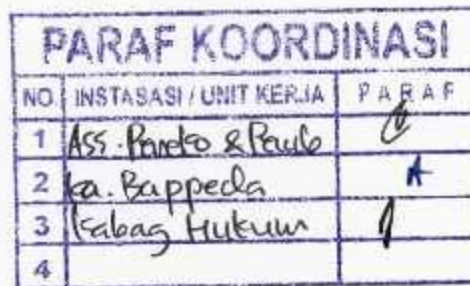 PARAF KOORDINASI
NO INSTASASI / UNIT KERJA PARAF
1 Ass. & 
2 ka. Bappeda
3 Kabag Hukum
4